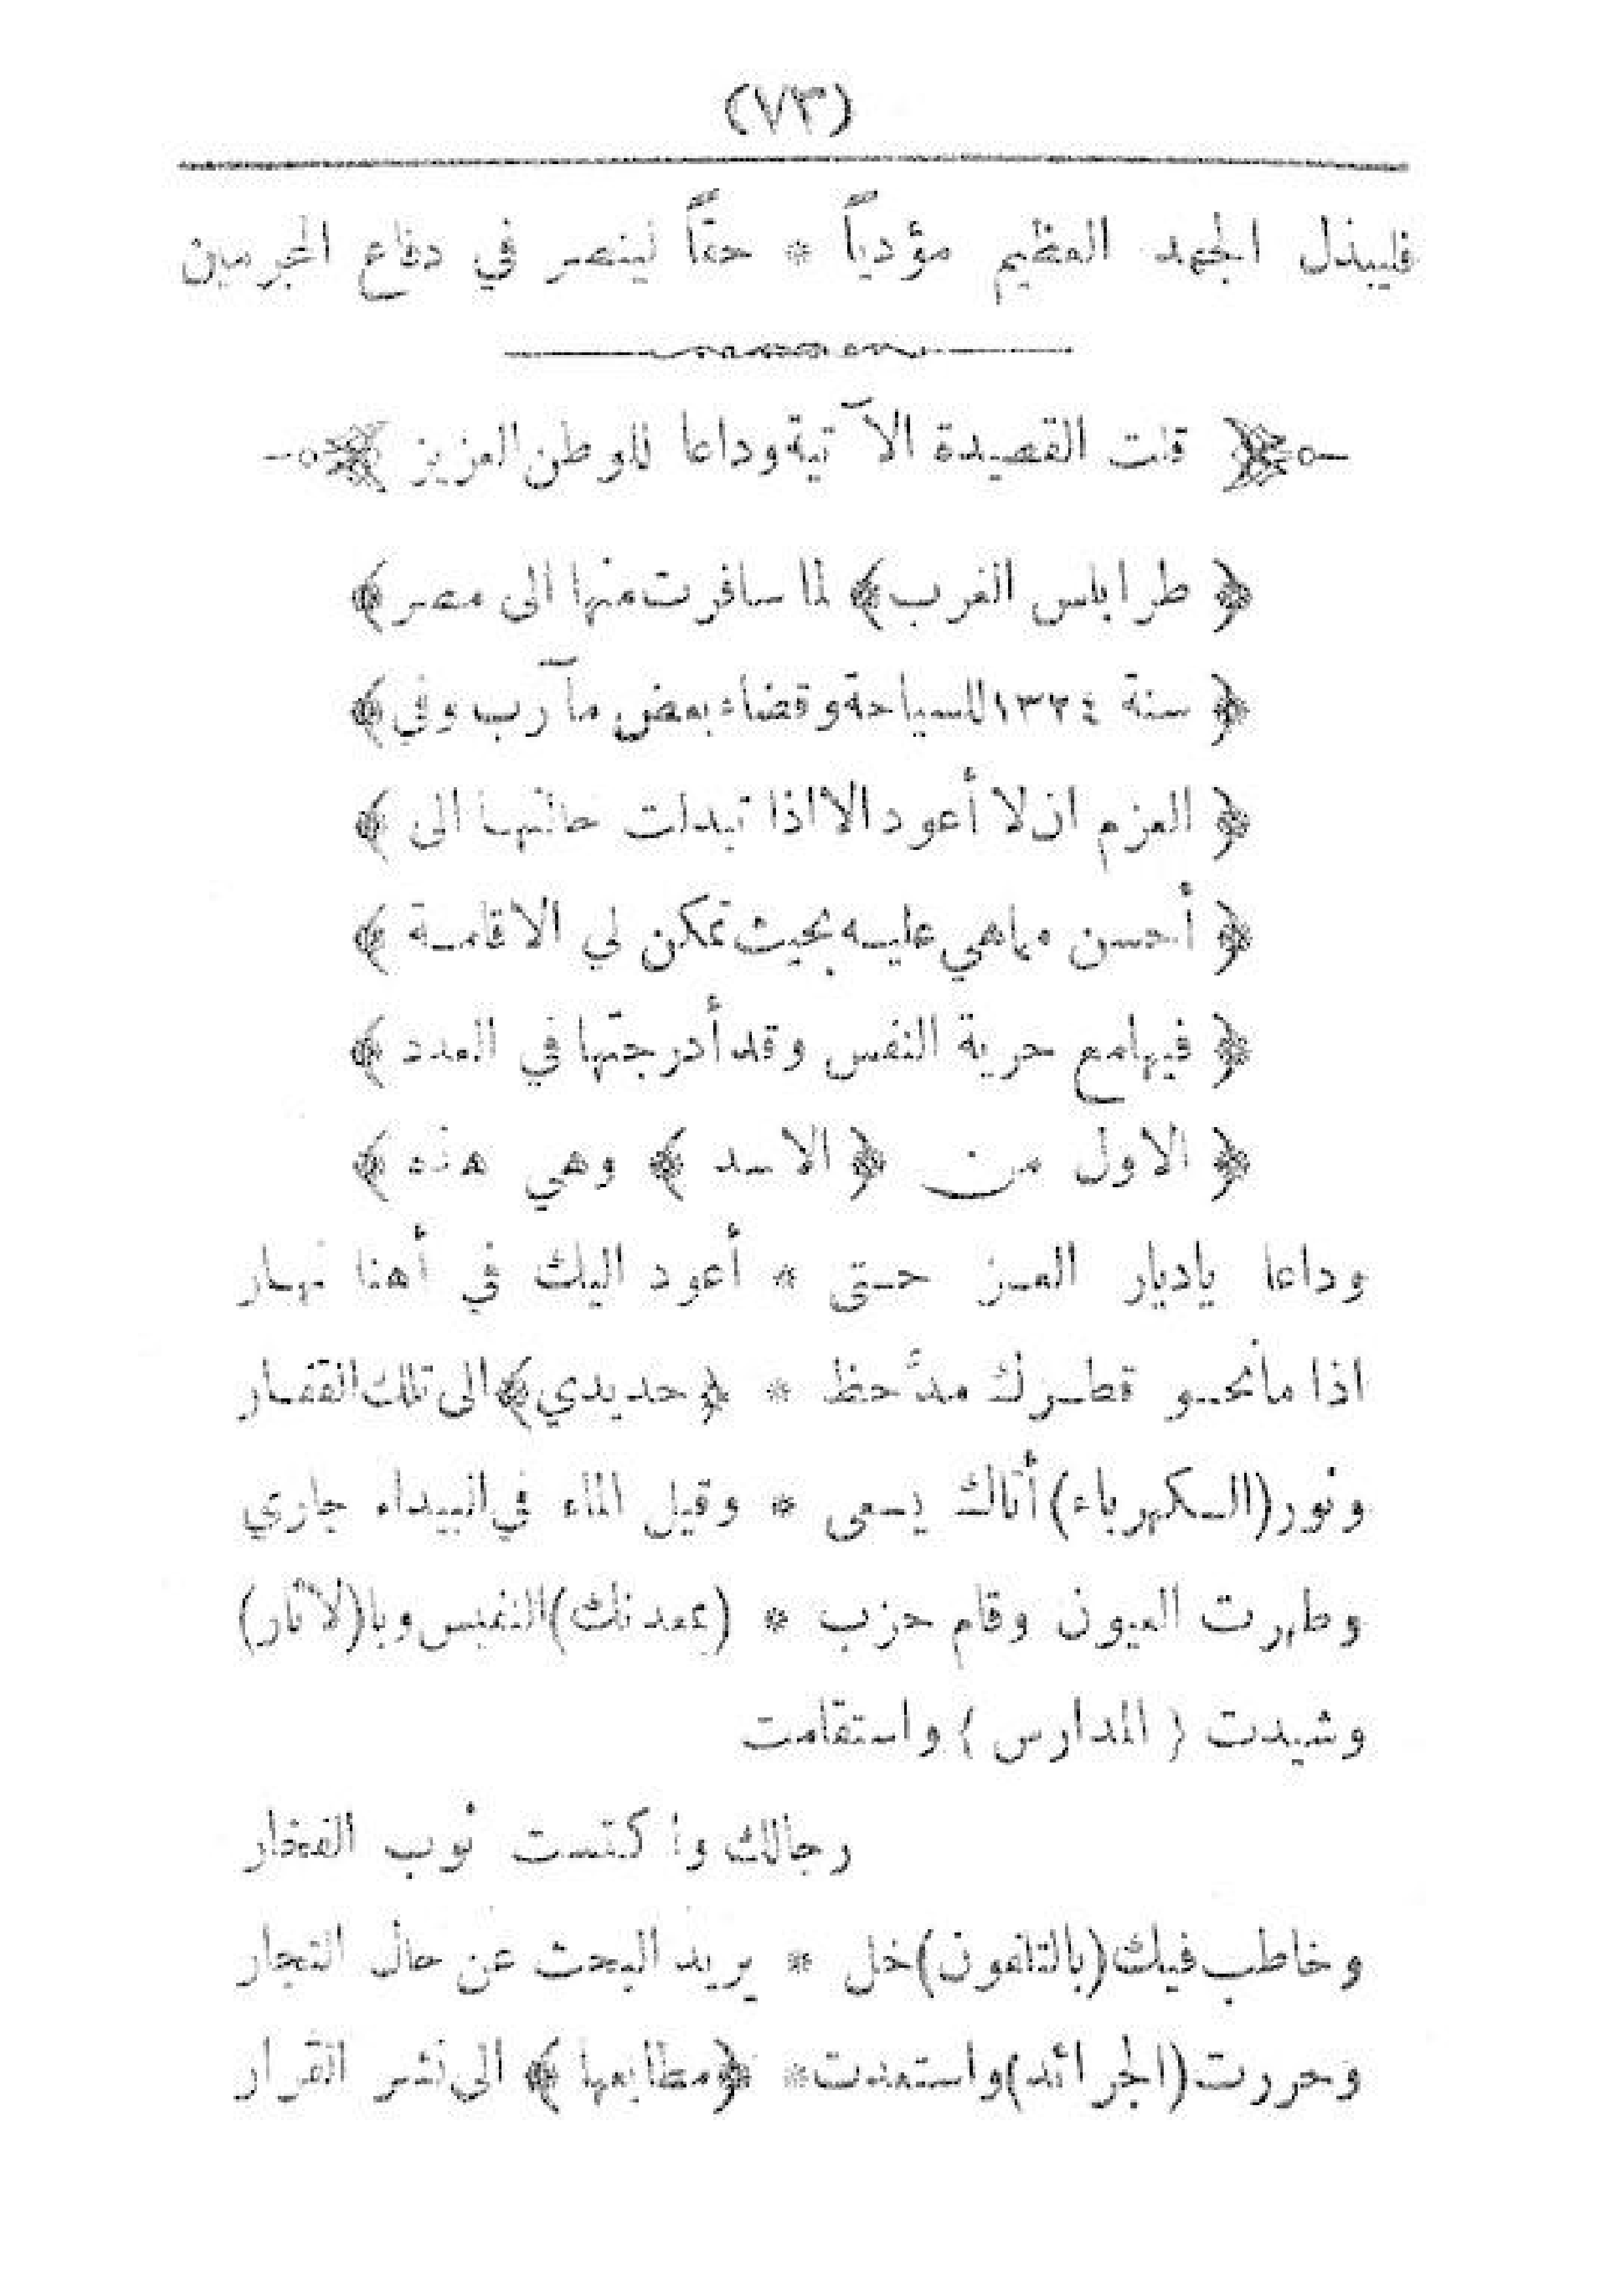 (٧٣)
فليبذل الجهد العظيم مؤدياً * حقاً لينصر في دفاع المجرمين
﴿ قلت القصيدة الآتية وداعا للوطن العزيز ﴾
﴿ طرابلس الغرب ﴾ لما سافرت منها الى مصر ﴾
﴿ سنة ١٣٢٤ للسياحة وقضاء بعض مآرب وفي ﴾
﴿ العزم ان لا أعود الا اذا تبدلت حالتها الى ﴾
﴿ أحسن مماهي عليه بحيث تمكن لي الاقامة ﴾
﴿ فيها مع حرية النفس وقد أدرجتها في العدد ﴾
﴿ الاول من ﴿ الاسد ﴾ وهي هذه ﴾
وداعا ياديار العز حتى * أعود اليك في أهنا نهار
اذا مانحو قطرك مدَّ حظ * ﴿حديدي﴾ الى تلك القفار
ونور (الكهرباء) أتاك يسعى * وقيل الماء في البيداء جاري
وطهرت العيون وقام حزب * (بمعدنك) النفيس وبا(لآثار)
وشيدت ( المدارس ) واستقامت
رجالك واكتست ثوب الفخار
وخاطب فيك (بالتلفون) خل * يريد البحث عن حال التجار
وحررت (الجرائد) واستعدت * ﴿مطابعها ﴾ الى نشر القرار